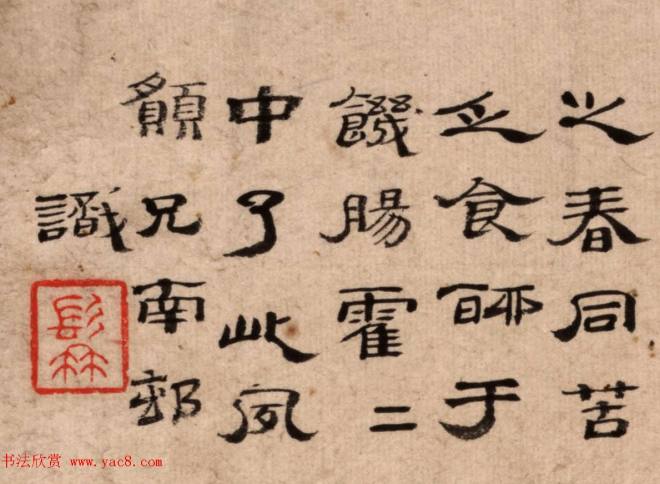 之春同苦
乏食師于
饑腸霍二
中了此夙
願兄南郭
識
书法欣赏 www.yac8.com